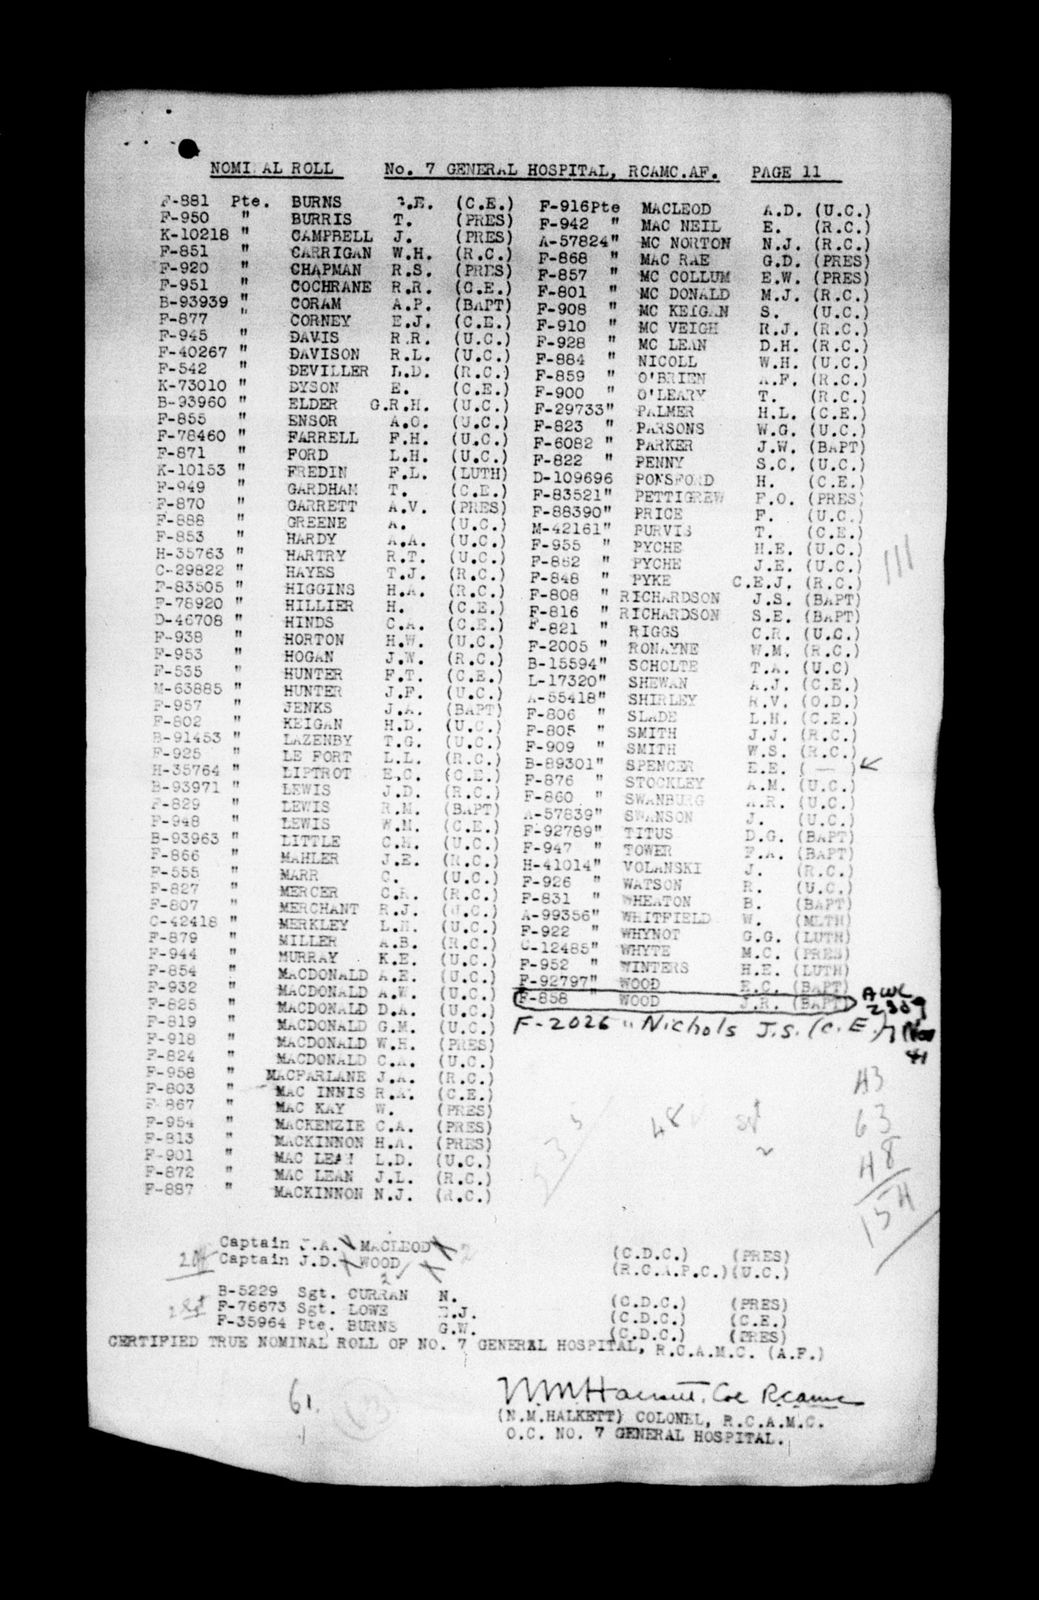 NOMINAL ROLL No. 7 GENERAL HOSPITAL, RCAMC.AF. PAGE 11
F-881 Pte. BURNS .E. (C.E.)
F-950 " BURRIS T. (PRES)
K-10218 " CAMPBELL J. (PRES)
F-851 " CARRIGAN W.H. (R.C.)
F-920 " CHAPMAN R.S. (PRES)
F-951 " COCHRANE R.R. (C.E.)
B-93939 " CORAM A.P. (BAPT)
F-877 " CORNEY E.J. (C.E.)
F-945 DAVIS R.R. (U.C.)
F-40267 " DAVISON R.L. (U.C.)
F-542 " DEVILLER L.D. (R.C.)
K-73010 " DYSON E. (C.E.)
B-93960 " ELDER G.R.H. (U.C.)
F-855 " ENSOR A.C. (U.C.)
F-78460 " FARRELL F.H. (U.C.)
F-871 " FORD L.H. (U.C.)
K-10153 " FREDIN F.L. (LUTH)
F-949 " GARDHAM T. (C.E.)
F-870 " GARRETT A.V. (PRES)
F-888 " GREENE A. (U.C.)
F-853 " HARDY A.A. (U.C.)
H-35763 " HARTRY R.T. (U.C.)
C-29822 " HAYES T.J. (R.C.)
F-83505 " HIGGINS H.A. (R.C.)
F-78920 " HILLIER H. (C.E.)
D-46708 " HINDS C.A. (C.E.)
F-938 " HORTON H.W. (U.C.)
F-953 " HOGAN J.W. (R.C.)
F-535 " HUNTER F.T. (C.E.)
M-63885 " HUNTER J.F. (U.C.)
F-957 " JENKS J.A. (BAPT)
F-802 " KEIGAN H.D. (U.C.)
B-91453 " LAZENBY T.G. (U.C.)
F-925 " LE FORT L.L. (R.C.)
H-35764 " LIPTROT E.C. (C.E.)
B-93971 " LEWIS J.D. (R.C.)
F-829 " LEWIS R.M. (BAPT)
F-948 " LEWIS W.M. (C.E.)
B-93963 " LITTLE C.H. (U.C.)
F-866 " MAHLER J.E. (R.C.)
F-555 " MARR C. (U.C.)
F-827 " MERCER C.R. (R.C.)
F-807 " MERCHANT R.J. (U.C.)
C-42418 " MERKLEY L.H. (U.C.)
F-879 " MILLER A.B. (R.C.)
F-944 " MURRAY K.E. (U.C.)
F-854 " MACDONALD A.E. (U.C.)
F-932 " MACDONALD A.W. (U.C.)
F-825 " MACDONALD D.A. (U.C.)
F-819 " MACDONALD G.M. (U.C.)
F-918 " MACDONALD W.H. (PRES)
F-824 " MACDONALD C.A. (U.C.)
F-958 " MACFARLANE J.A. (R.C.)
F-803 " MAC INNIS R.A. (C.E.)
F-867 " MAC KAY W. (PRES)
F-954 " MACKENZIE C.A. (PRES)
F-813 " MACKINNON H.A. (PRES)
F-901 " MAC LEAN L.D. (U.C.)
F-872 " MAC LEAN J.L. (R.C.)
F-887 " MACKINNON N.J. (R.C.)
F-916Pte MACLEOD A.D. (U.C.)
F-942 " MAC NEIL E. (R.C.)
A-57824" MC NORTON N.J. (R.C.)
F-868 " MAC RAE G.D. (PRES)
F-857 " MC COLLUM E.W. (PRES)
F-801 " MC DONALD M.J. (R.C.)
F-908 " MC KEIGAN S. (U.C.)
F-910 " MC VEIGH R.J. (R.C.)
F-928 " MC LEAN D.H. (R.C.)
F-884 " NICOLL W.H. (U.C.)
F-859 " O'BRIEN A.F. (R.C.)
F-900 " O'LEARY T. (R.C.)
F-29733" PALMER H.L. (C.E.)
F-823 " PARSONS W.G. (U.C.)
F-6082 " PARKER J.W. (BAPT)
F-822 " PENNY S.C. (U.C.)
D-109696 PONSFORD H. (C.E.)
F-83521" PETTIGREW F.O. (PRES)
F-88390" PRICE F. (U.C.)
M-42161" PURVIS T. (C.E.)
F-955 " PYCHE H.E. (U.C.)
F-852 " PYCHE J.E. (U.C.)
F-848 " PYKE C.E.J. (R.C.)
F-808 " RICHARDSON J.S. (BAPT)
F-816 " RICHARDSON S.E. (BAPT)
F-821 " RIGGS C.R. (U.C.)
F-2005 " RONAYNE W.M. (R.C.)
B-15594" SCHOLTE T.A. (U.C)
L-17320" SHEWAN A.J. (C.E.)
A-55418" SHIRLEY R.V. (O.D.)
F-806 " SLADE L.H. (C.E.)
F-805 " SMITH J.J. (R.C.)
F-909 " SMITH W.S. (R.C.)
B-89301" SPENCER E.E. ( — )
F-876 " STOCKLEY A.M. (U.C.)
F-860 " SWANBURG A.R. (U.C.)
A-57839" SWANSON J. (U.C.)
F-92789" TITUS D.G. (BAPT)
F-947 " TOWER F.A. (BAPT)
H-41014" VOLANSKI J. (R.C.)
F-926 " WATSON R. (U.C.)
F-831 " WHEATON B. (BAPT)
A-99356" WHITFIELD W. (METH)
F-922 " WHYNOT G.G. (LUTH)
C-12485" WHYTE M.C. (PRES)
F-952 " WINTERS H.E. (LUTH)
F-92797" WOOD E.C. (BAPT)
F-858 " WOOD J.R. (BAPT)
AWL
2309
F-2026 " Nichols J.S. (C.E.) Nov
41
111
43
63
48
154
48
Captain .A. MACLEOD (C.D.C.) (PRES)
204
Captain J.D. WOOD (R.C.A.P.C.)(U.C.)
2
B-5229 Sgt. CURRAN N. (C.D.C.) (PRES)
F-76673 Sgt. LOWE .J. (C.D.C.) (C.E.)
F-35964 Pte. BURNS G.W. (C.D.C.) (PRES)
CERTIFIED TRUE NOMINAL ROLL OF NO. 7 GENERAL HOSPITAL, R.C.A.M.C. (A.F.)
61.
NMHalkett. Col Rcamc
(N.M.HALKETT) COLONEL, R.C.A.M.C.
O.C. NO. 7 GENERAL HOSPITAL.